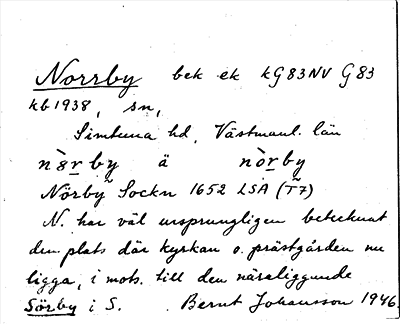 Norrby bek ek kG83NV G83
kb1938, sn,
Simtuna hd, Västmanl. län
nòrby ä nòrby
Nörby Sockn 1652 LSA (T7)
N. har väl ursprungligen betecknat
den plats där kyrkan o. prästgården nu
ligga, i mots. till den näraliggande
Sörby i S. Bernt Johansson 1946.